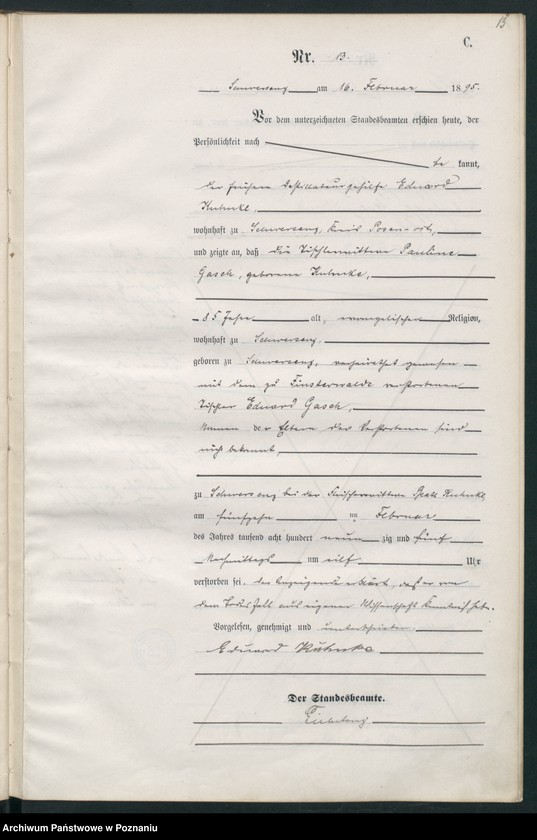 13
C.
Nr. 13.
Schwersenz am 16. Februar 1895.
Vor dem unterzeichneten Standesbeamten erschien heute, der
Persönlichkeit nach
be kannt,
der frühere Destillateurgehilfe Eduard
Kuhnke,
wohnhaft zu Schwersenz, Kreis Posen-Ost,
und zeigte an, daß die Tischlerwittwe Pauline
Gasch, geborene Kuhnke,
85 Jahre alt, evangelischer Religion,
wohnhaft zu Schwersenz,
geboren zu Schwersenz, verheirathet gewesen
mit dem zu Finsterwalde verstorbenen
Tischler Eduard Gasch,
Namen der Eltern der Verstorbenen sind
nicht bekannt,
zu Schwersenz bei der Kuhnke,
am fünfzehn ten Februar
des Jahres tausend acht hundert neun zig und fünf
Nachmittags um eilf Uhr
verstorben sei. Der Anzeigende erklärt, daß er von
dem Todesfall aus eigener Wissenschaft Kenntniß habe.
Vorgelesen, genehmigt und unterschrieben
Eduard Kuhnke
Der Standesbeamte.
Archiwum Państwowe w Poznaniu